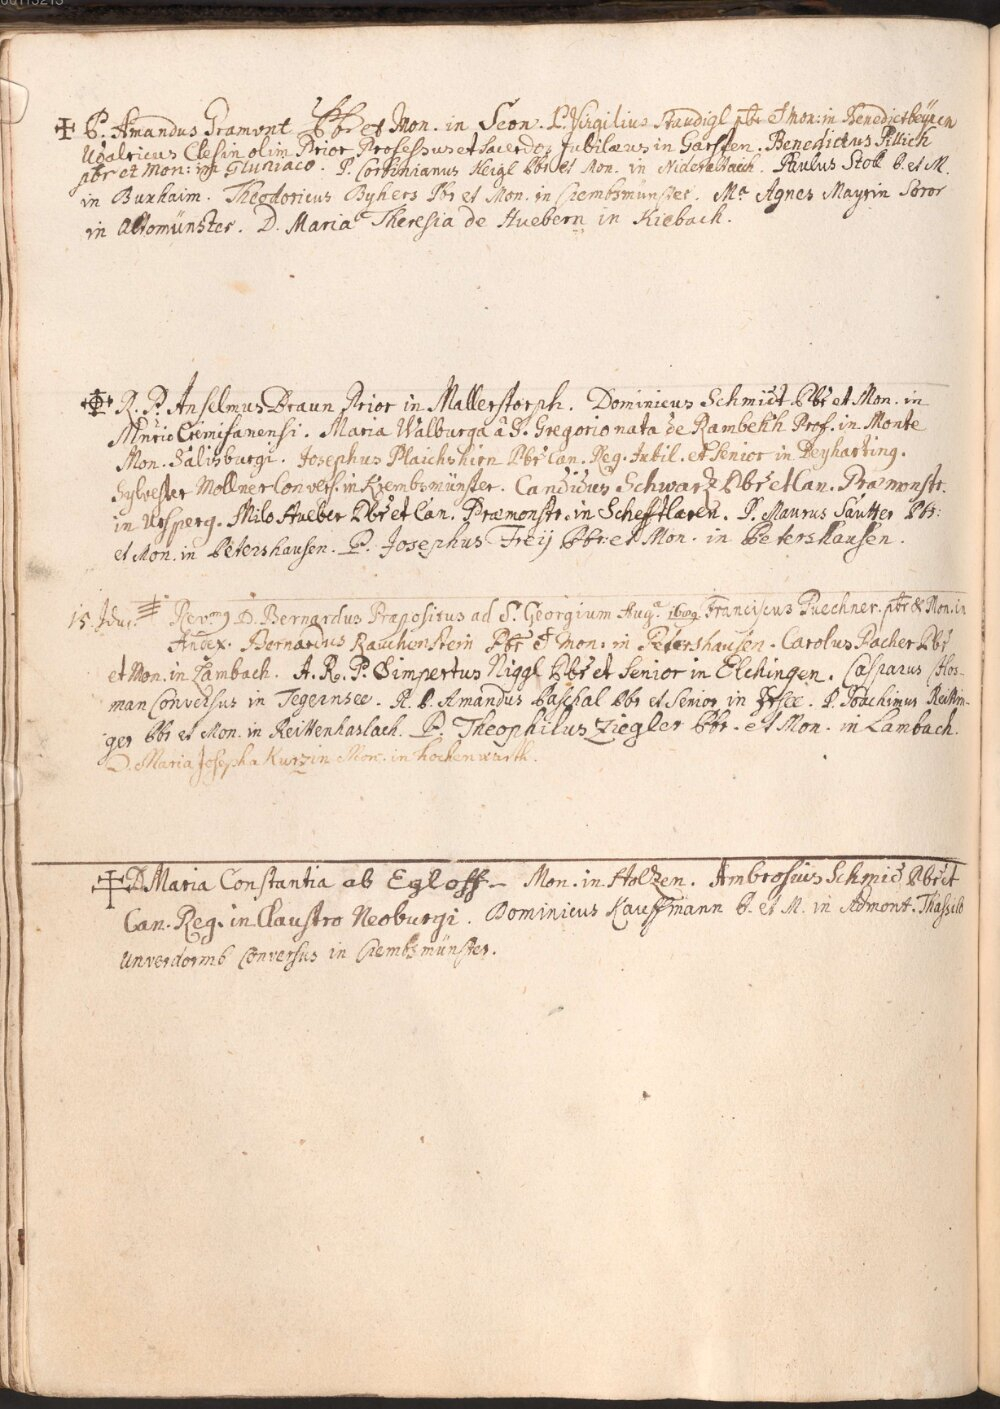 00113213
✠ P. Amandus Gramont Pbr et Mon. in Seon. P. Virgilius Staudigl pbr & Mon: in Benedictbeÿren
Udalricus Clesin olim Prior Professus et Sacerdos Jubilæus in Garsten. Benedictus Pillich
pbr et Mon: in Gluniaco. P. Corbinianus Keigl Pbr et Mon. in Nideraltaich. Paulus Stoll P. et M.
in Buxhaim. Theodoricus Byhers Pbr et Mon. in Crembsmünster. Ma Agnes Mayrin Soror
in Altomünster. D. Maria Theresia de Huebern in Kiebach.
R. P. Anselmus Braun Prior in Mallerstorph. Dominicus Schmidt Pbr et Mon. in
Mnrio Cremifanensi. Maria Walburga â S. Gregorio nata de Rambekh Prof. in Monte
Mon. Salisburgi. Josephus Plaichshirn Pbr Can. Reg. Jubil. et Senior in Beyharting.
Sylvester Mollner Convers. in Krembsmünster. Candidus Schwarz Pbr et Can. Præmonstr.
in Ursperg. Milo Hueber Pbr et Can. Præmonstr. in Schefftlaren. P. Maurus Sautter Pbr:
et Mon. in Petershausen. P. Josephus Freÿ Pbr: et Mon. in Petershausen.
15 Rev D. Bernardus Præpositus ad S. Georgium Aug. 1609. Franciscus Puechner. pbr & Mon. in
Andex. Bernardus Rauchenstein Pbr & Mon. in Petershausen. Carolus Pacher Pbr
et Mon. in Lambach. A. R. P. Simpertus Niggl Pbr et Senior in Elchingen. Casparus Hos-
man Conversus in Tegernsee. R. P. Amandus Paschal Pbr et Senior in Irsee. P. Joachimus Reittin-
ger Pbr et Mon. in Reittenhaslach. P. Theophilus Ziegler Pbr. et Mon. in Lambach.
D. Maria Josepha Kurzin Mon. in Hochenwarth.
D. Maria Constantia ab Egloff. Mon. in Holzen. Ambrosius Schmid Pbr et
Can. Reg. in Claustro Neoburgi. Dominicus Kauffmann P. et M. in Admont. Thassilo
Unverdormb Conversus in Crembsmünster.